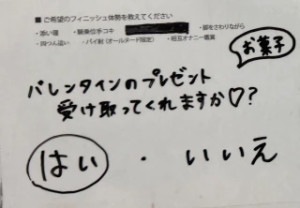 ■ ご希望のフィニッシュ体勢を教えてください
・添い寝 ・騎乗位手コキ ・脚をさわりながら
・四つん這い ・パイ射（オールヌード限定） ・相互オナニー鑑賞
お菓子
バレンタインのプレゼント
受け取ってくれますか♡?
はい ・ いいえ